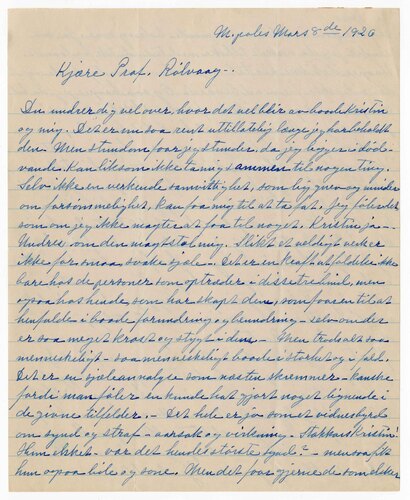 M.poles Mars 8de 1926
Kjære Prof. Rölvaag-.
Du undrer dig vel over, hvor det vel blir av baade Kristin
og mig. Det er en saa rent utillatelig længe jeg har beholdt
den. Men stundom faar jeg stunder, da jeg ligger i död-
vande. Kan liksom ikke ta mig sammen til nogen ting.
Selv ikke en verkende samvittighet, som big gnev og
om forsömmelighet, kan faa mig til at ta fat. Jeg föler det
som om jeg ikke magter at faa til noget. Kristin ja-
Undres om den magtstal mig. Slikt et veldigt verk er
ikke for smaa svake sjæle. Det er en kraftutfoldelse ikke
bare hos de personer som optræder i disse tre bind, men
ogsaa hos hende som har skapt dem, som faar en til at
henfalde i baade forundring og beundring - selv om det
er saa meget krast og stygt i dem - Men trods alt saa
menneskeligt - saa menneskeligt baade i storhet og i fald.
Det er en sjæleanalyse som næsten skræmmer - kanske
fordi man föler en kunde hat gjort noget lignende i
de givne tilfælder. - Det hele er jo som et vidnesbyrd
om synd og straf - aarsak og virkning. Stakkars Kristin!
Hun elsket - var det hendes störste synd? - men saa fik
hun ogsaa lide og sone. Men det faar gjerne de som elsker